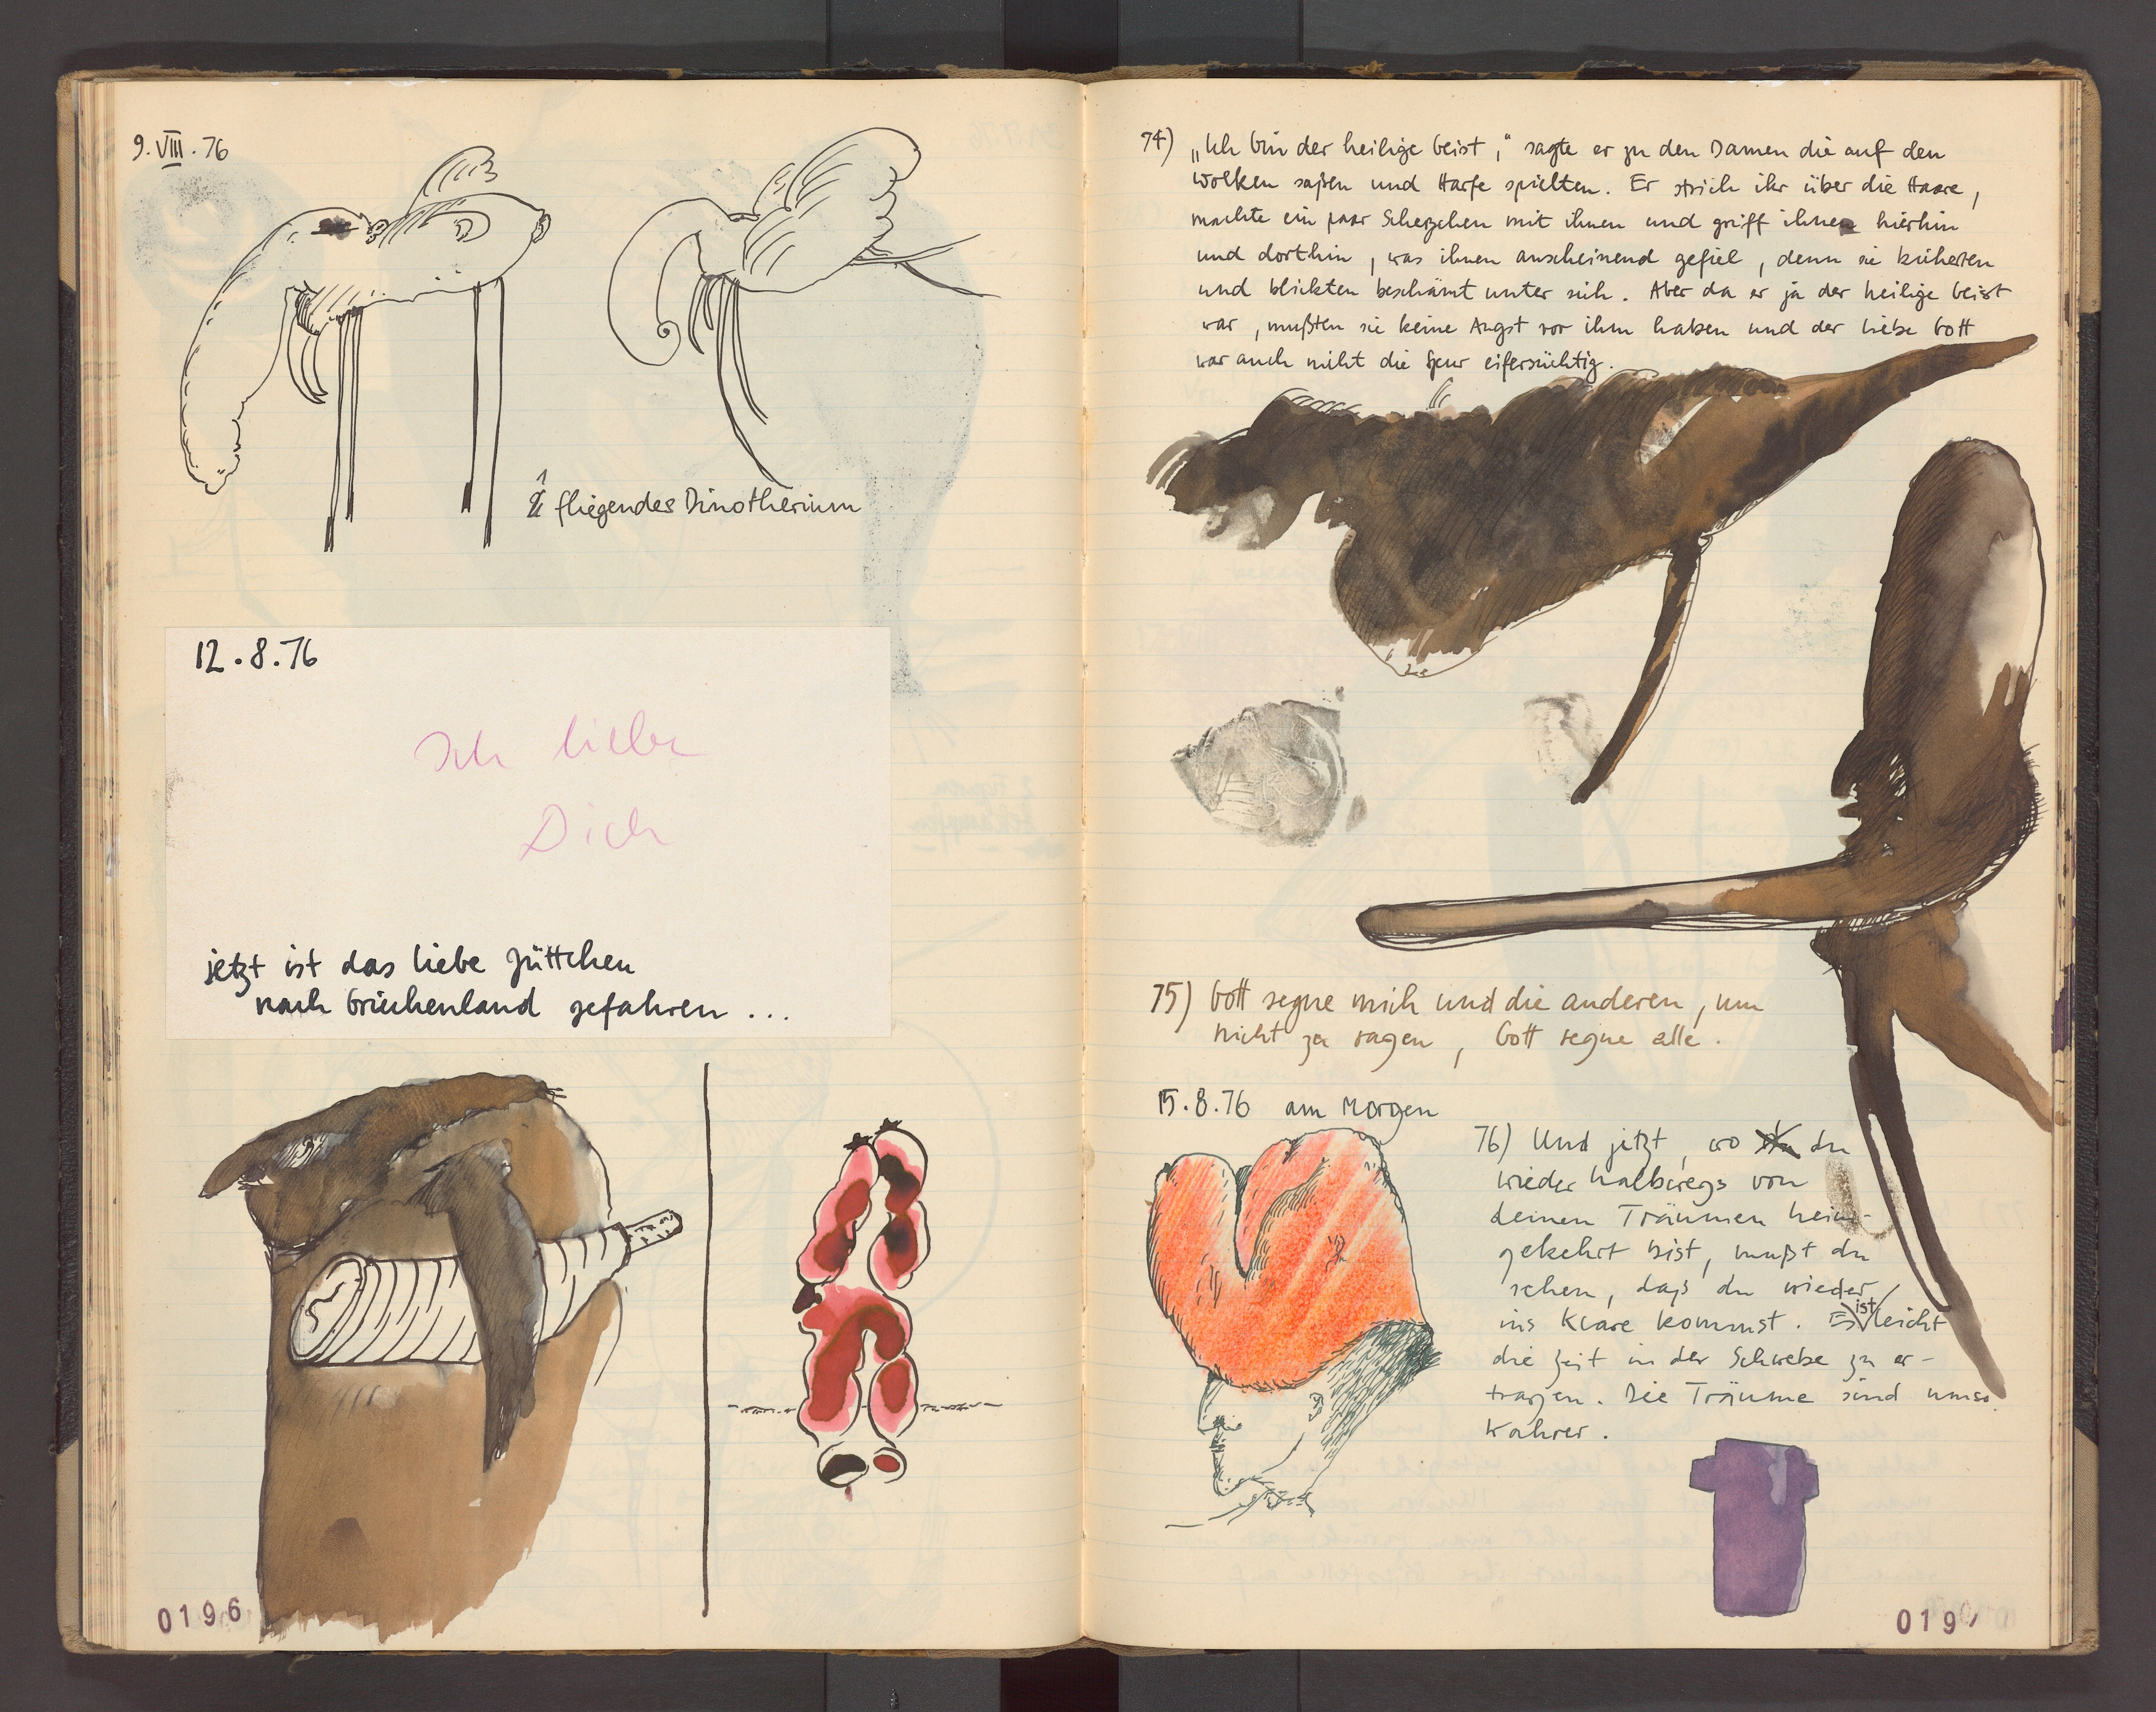 9.VIII.76
fliegendes Dinotherium
12.8.76
Ich liebe
Dich
jetzt ist das liebe Jüttchen
nach Griechenland gefahren ...
0196
74) „Ich bin der heilige Geist," sagte er zu den Damen die auf den
Wolken saßen und Harfe spielten. Er strich ihr über die Haare,
machte ein paar Scherzchen mit ihnen und griff ihnen hierhin
und dorthin, was ihnen anscheinend gefiel, denn sie kicherten
und blickten beschämt unter sich. Aber da er ja der heilige Geist
war, mußten sie keine Angst vor ihm haben und der liebe Gott
war auch nicht die Spur eifersüchtig.
75) Gott segne mich und die anderen, um
nicht zu sagen, Gott segne alle.
15.8.76 am Morgen
76) Und jetzt, wo du
wieder halbwegs von
deinen Träumen heim-
gekehrt bist, mußt du
sehen, daß du wieder
ins Klare kommst. Es ist leicht
die Zeit in der Schwebe zu er-
tragen. Die Träume sind umso
wahrer.
019